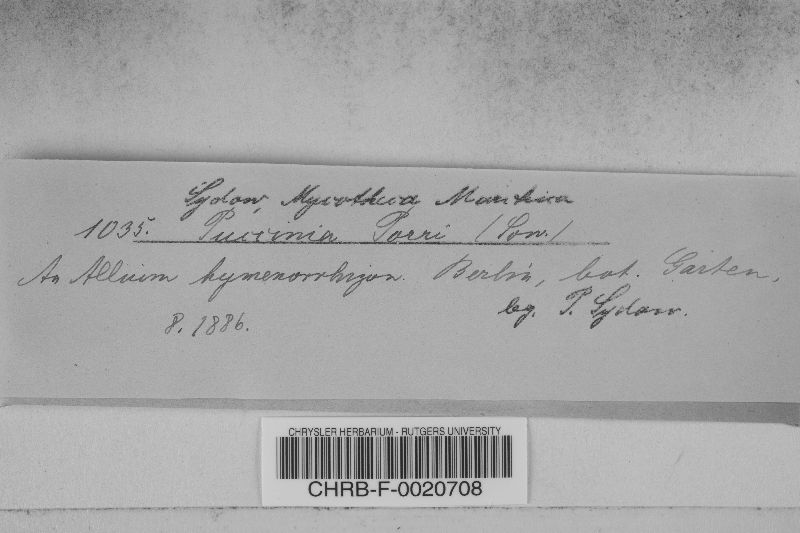 Sydow, Mycotheca Marchica
1035. Puccinia Porri (Sow.)
An Allium hymenorrhizon. Berlin, bot. Garten.
8. 1886.
leg. P. Sydow.
CHRYSLER HERBARIUM - RUTGERS UNIVERSITY
CHRB-F-0020708